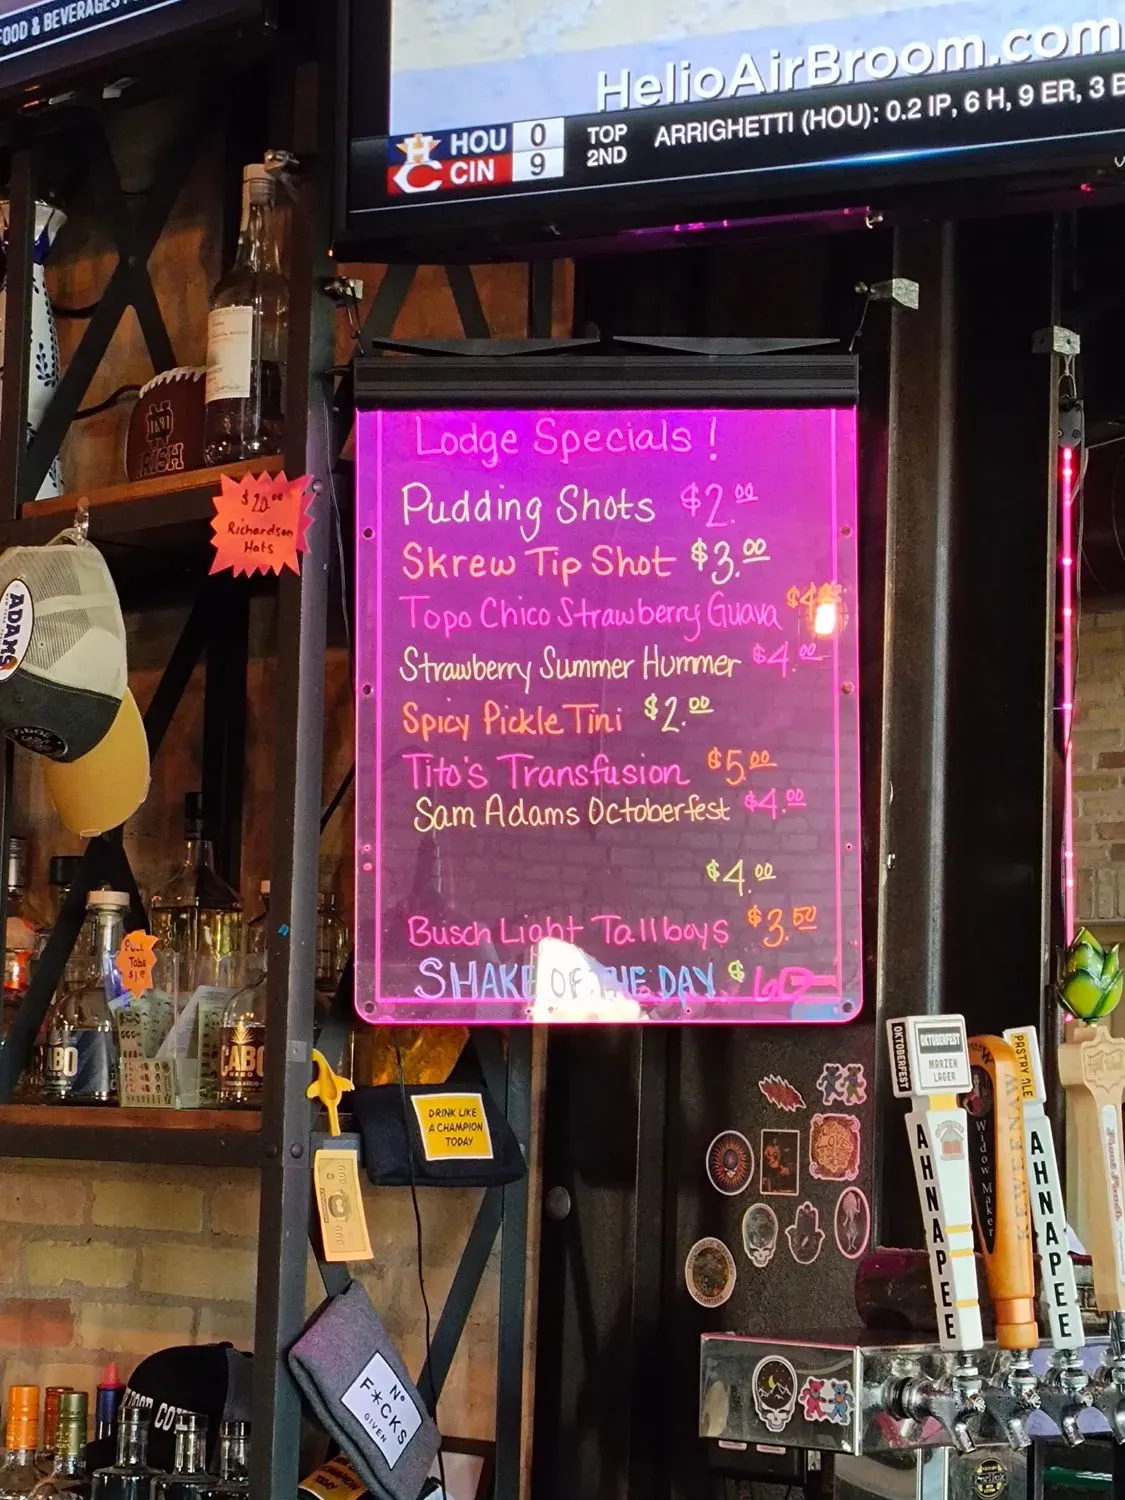 FOOD & BEVERAGES
HelioAirBroom.com
HOU 0
CIN 9
TOP
2ND
ARRIGHETTI (HOU): 0.2 IP, 6 H, 9 ER, 3 B
Lodge Specials!
Pudding Shots $2.00
Skrew Tip Shot $3.00
Topo Chico Strawberry Guava
Strawberry Summer Hummer $4.00
Spicy Pickle Tini $2.00
Tito's Transfusion $5.00
Sam Adams Octoberfest $4.00
$4.00
Busch Light Tallboys $3.50
SHAKE OF THE DAY $
ND
IRISH
$20.00
Richardson
Hats
ADAMS
Pull
Tabs
CABO
CABO
DRINK LIKE
A CHAMPION
TODAY
No
F*CKS
GIVEN
OKTOBERFEST
OKTOBERFEST
MARZEN
LAGER
AHNAPEE
Widow Maker
KEWEENAW
PASTRY ALE
AHNAPEE
LOVE